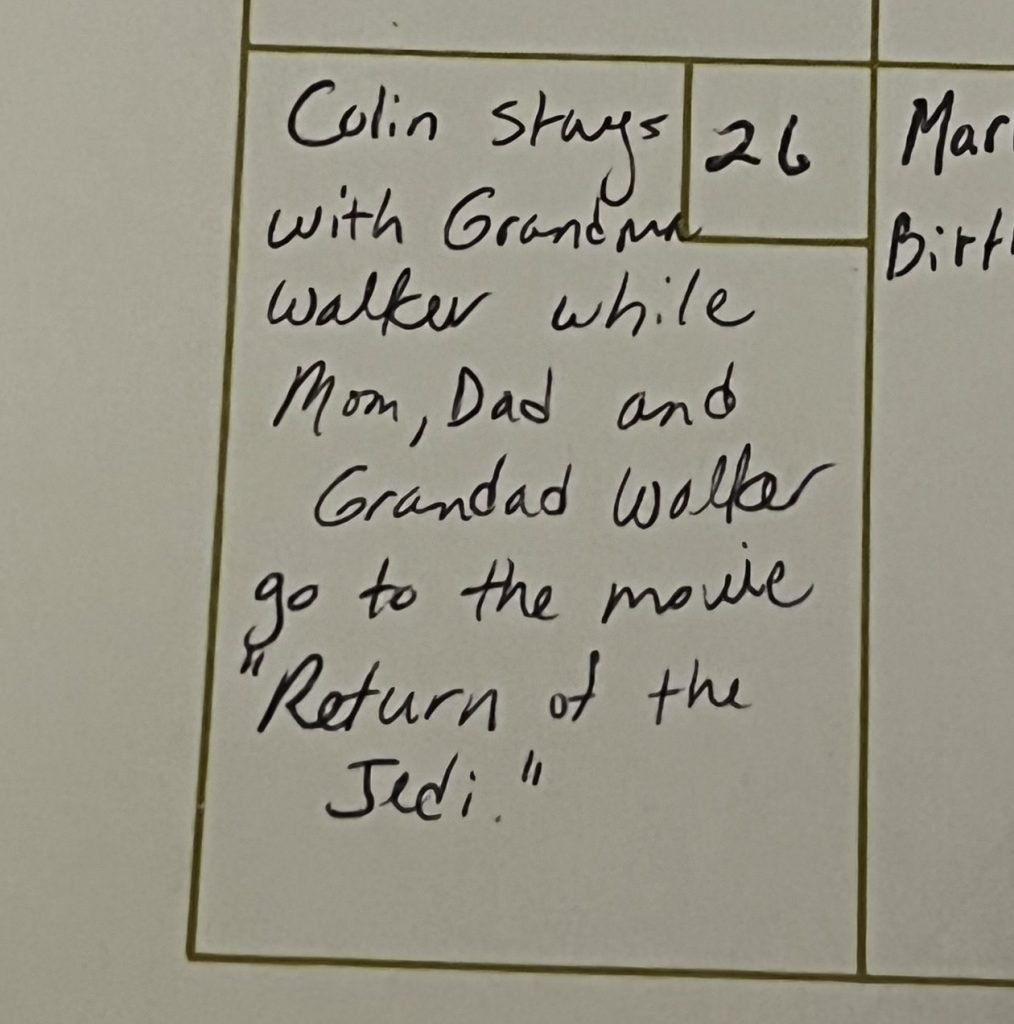 Colin stays
26
with Grandma
Walker while
Mom, Dad and
Grandad Walker
go to the movie
"Return of the
Jedi."
Mar
Birt